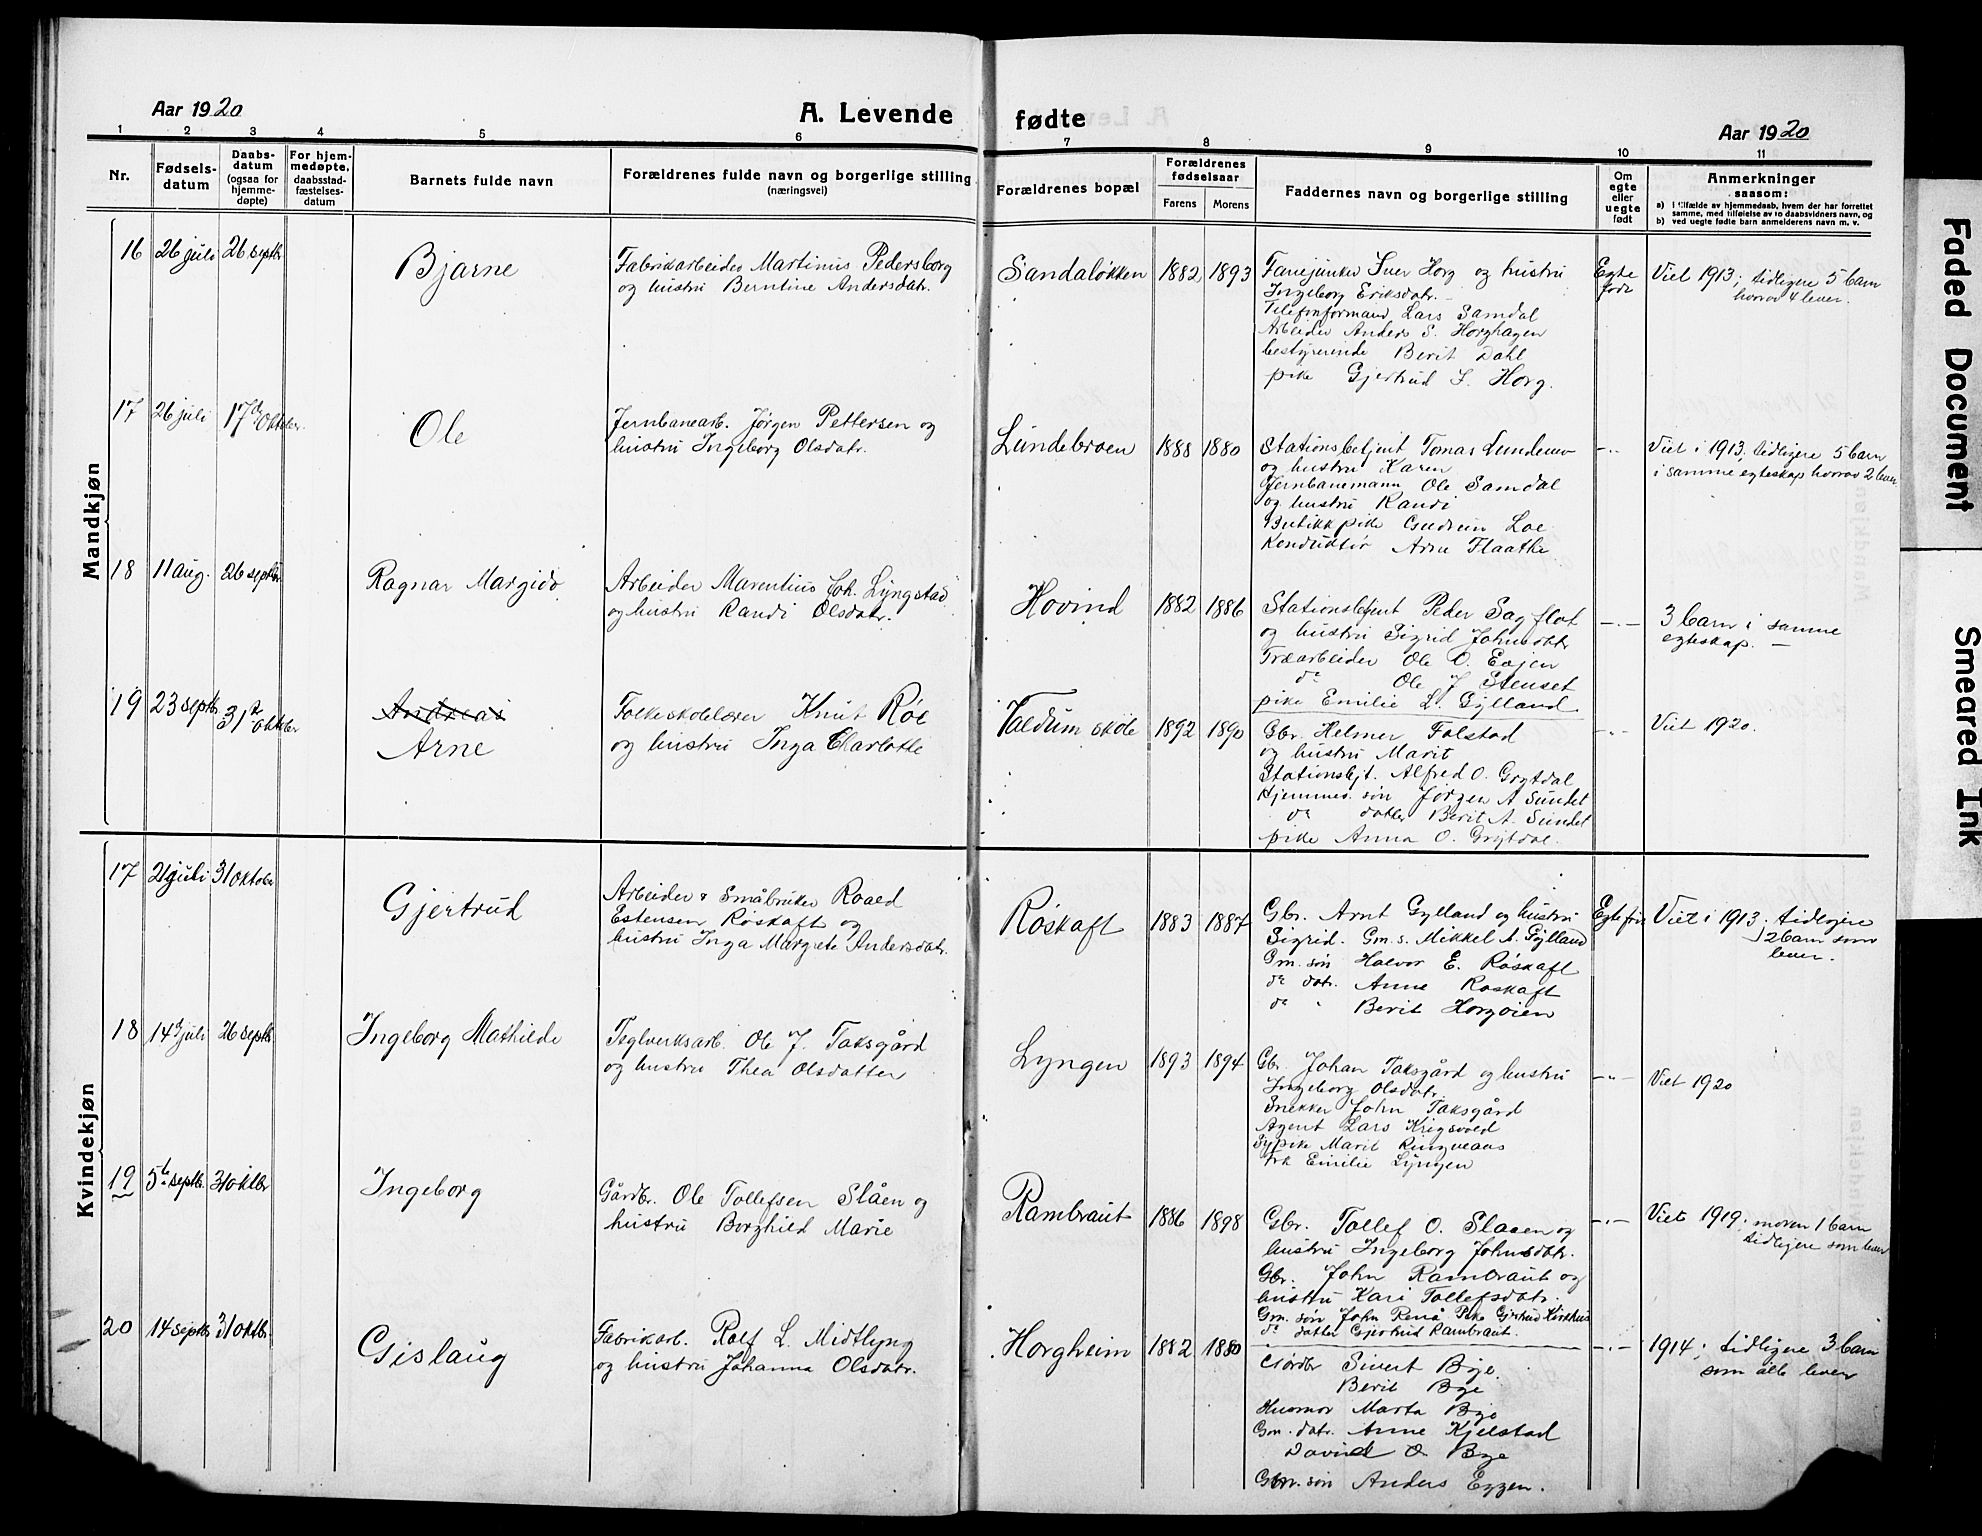 Aar 1920
A. Levende fødte
Aar 1920
1 2 3 4 5 6 7 8 9 10 11
Nr.
Fødsels-
datum
Daabs-
datum
(ogsaa for
hjemme-
døpte)
For hjem-
medøpte,
daabsstad-
fæstelses-
datum
Barnets fulde navn
Forældrenes fulde navn og borgerlige stilling
(næringsvei)
Forældrenes bopæl
Forældrenes
fødselsaar
Farens Morens
Faddernes navn og borgerlige stilling
Om
egte
eller
uegte
født
Anmerkninger
saasom:
a) i tilfælde av hjemmedaab, hvem der har forrettet
samme, med tilføielse av to daabsvidners navn, og
b) ved uegte fødte barn anmelderens navn m. v.
Mandkjøn
16 26 juli 26 septbr
Bjarne
Fabrikarbeider Martinus Pedersborg
og hustru Berntine Andersdatr.
Sandaløkken 1882 1893
Fanejunker Iver Horg og hustru
Ingeborg Eriksdatr.
Telefonformand Lars Samdal
Arbeider Anders S. Horghagen
bestyrerinde Berit Dahl
pike Gjertrud S. Horg.
Egte
født
Viet 1913; tidligere 5 barn
hvorav 4 lever.
17 26 juli 17de oktober
Ole
Jernbanearb. Jørgen Pettersen og
hustru Ingeborg Olsdatr.
Lundebroen 1888 1880
Stationsbetjent Tomas Lundemo
og hustru Karen
Jernbanemann Ole Samdal
og hustru Randi
Butikkpike Gudrun Loe
Konduktør Arne Flaathe
-"-
Viet i 1913; tidligere 5 barn
i samme egteskap hvorav 2 lever
18 11 aug. 26 septbr
Ragnar Margido
Arbeider Marentius Joh. Lyngstad
og hustru Randi Olsdatr.
Hovind 1882 1886
Stationsbetjent Peder Sagflot
og hustru Sigrid Johnsdtr
Træarbeider Ole O. Eojen
do Ole J Stenset
pike Emilie L. Gylland
-"-
3 barn i samme
egteskap. —
19 23 septbr. 31te oktober
Andreas
Arne
Folkeskolelærer Knut Røe
og hustru Inga Charlotte
Valdum skole 1892 1890
Gbr. Helmer Folstad
og hustru Marit
Stationsbjt. Alfred O. Grytdal
Hjemmev. søn Jørgen A Sundet
do datter Berit A. Sundet
pike Anna O. Grytdal.
-"-
Viet 1920.
Kvindekjøn
17 21 juli 31 oktober
Gjertrud
Arbeider & Småbruker Roald
Estensen Røskaft og
hustru Inga Margrete Andersdatr.
Røskaft 1883 1887
Gbr. Arnt Gylland og hustru
Sigrid. Gm. s. Mikkel A. Gylland
Gm. søn Halvor E. Røskaft
do datr. Anne Røskaft
do " Berit Horgøien
Egte fød
Viet i 1913; tidligere
2 barn som
lever.
18 14de juli 26 septbr
Ingeborg Mathilde
Teglverksarb. Ole J. Taksgård
og hustru Thea Olsdatter
Lyngen 1893 1894
Gbr. Johan Taksgård og hustru
Ingeborg Olsdatr.
Snekker John Taksgård
Agent Lars Krigsvold
Sypike Marit Ringveans
Frk Emilie Lyngen
-"-
Viet 1920
19 5te septbr. 31 oktbr
Ingeborg
Gårdbr. Ole Tollefsen Slåen og
hustru Borghild Marie
Rambraut 1886 1898
Gbr. Tollef O. Slaaen og
hustru Ingeborg Johnsdatr.
Gbr. John Rambraut og
hustru Kari Tollefsdatr.
Gm. søn John Renå Pike Gjertrud Kirkhus
do datter Gjertrud Rambraut.
-"-
Viet 1919; moren 1 barn
tidligere som lever
20 14 septbr 31 oktbr.
Gislaug
Fabrikarb. Rolf L. Midtlyng
og hustru Johanna Olsdatr.
Horgheim 1882 1880
Gårdbr Sivert Bye.
Berit Bye
Husmor Marta Bye
Gm. datr. Anne Kjelstad
David O. Bye
Gbr. søn Anders Eggen.
-"-
1914; tidligere 3 barn
som alle lever
Faded Document
Smeared Ink